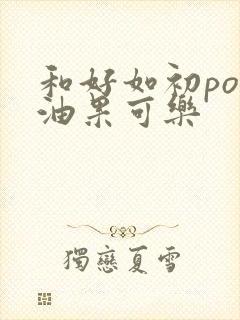 和好如初po
油果可樂
獨戀夏雪